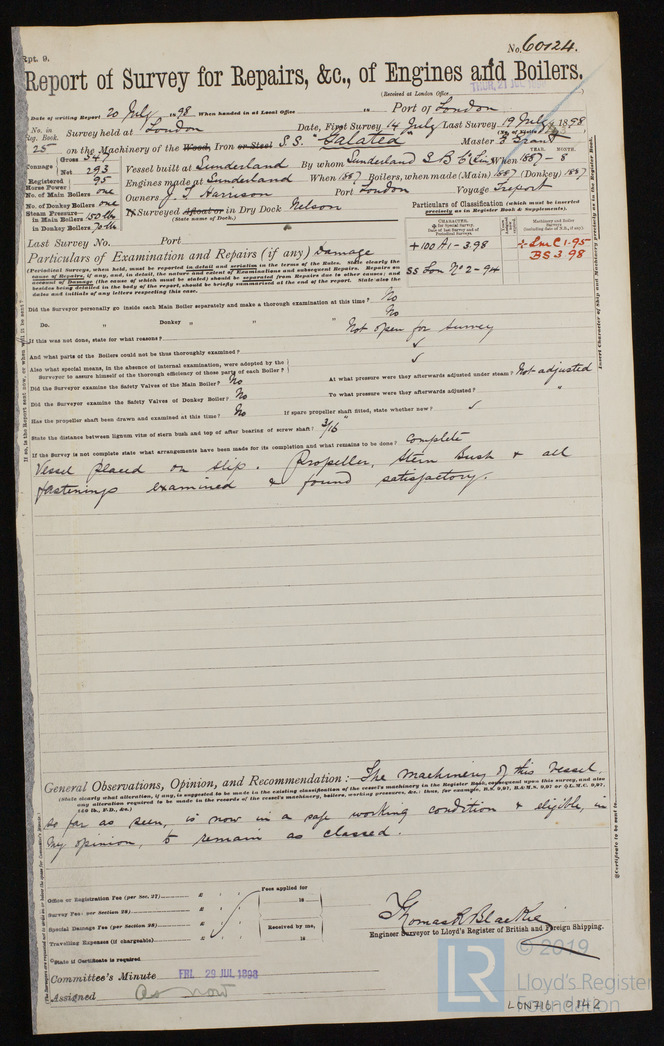 Rpt. 9.
No. 60124.
Report of Survey for Repairs, &c., of Engines and Boilers.
(Received at London Office
THUR. 21 JUL 1898
Date of writing Report 20 July 1898 When handed in at Local Office 18 Port of London
No. in Reg. Book. Survey held at London Date, First Survey 14 July Last Survey 19 July 1898
25 on the Machinery of the Wood, Iron or Steel S.S. "Galatea" Master F Grant
Tonnage Gross 547
Net 293
Vessel built at Sunderland By whom Sunderland S B C Lim When 1887 - 8
YEAR. MONTH.
Registered Horse Power 95
Engines made at Sunderland When 1887 Boilers, when made (Main) 1887 (Donkey) 1887
No. of Main Boilers one
Owners J. T. Harrison Port London Voyage Treport
No. of Donkey Boilers one
Steam Pressure in Main Boilers 150 lb
in Donkey Boilers 70 lb
If Surveyed Afloat or in Dry Dock Nelson
(State name of Dock.)
Particulars of Classification (which must be inserted precisely as in Register Book & Supplements).
CHARACTER.
for Special Survey.
Date of last Survey and of Periodical Surveys.
Machinery and Boiler
+100 A1 - 3.98
SS Lon No 2 - 94
+ LMC 1.95
BS 3 98
Last Survey No. Port
Particulars of Examination and Repairs (if any) Damage
(Periodical Surveys, when held, must be reported in detail and seriatim in the terms of the Rules. State clearly the
cause of Repairs, if any, and, in detail, the nature and extent of Examinations and subsequent Repairs. Repairs on
account of Damage (the cause of which must be stated) should be separated from Repairs due to other causes; and
besides being detailed in the body of the report, should be briefly summarised at the end of the report. State also the
dates and initials of any letters respecting this case.
Did the Surveyor personally go inside each Main Boiler separately and make a thorough examination at this time? No
Do. " Donkey " " " No
If this was not done, state for what reasons? Not open for survey
And what parts of the Boilers could not be thus thoroughly examined? ✓
Also what special means, in the absence of internal examination, were adopted by the
Surveyor to assure himself of the thorough efficiency of those parts of each Boiler? ✓
Did the Surveyor examine the Safety Valves of the Main Boiler? No At what pressure were they afterwards adjusted under steam? Not adjusted
Did the Surveyor examine the Safety Valves of Donkey Boiler? No To what pressure were they afterwards adjusted? "
Has the propeller shaft been drawn and examined at this time? No If spare propeller shaft fitted, state whether new? ✓
State the distance between lignum vitæ of stern bush and top of after bearing of screw shaft? 3/16"
If the Survey is not complete state what arrangements have been made for its completion and what remains to be done? Complete
Vessel placed on slip. Propeller, stern bush & all
fastenings examined & found satisfactory.
General Observations, Opinion, and Recommendation:— The machinery of this vessel
(State clearly what alteration, if any, is suggested to be made in the existing classification of the vessel's machinery in the Register Book, consequent upon this survey, and also
any alteration required to be made in the records of the vessel's machinery, boilers, working pressures, &c.: thus, for example, B.S. 9,97, B.&M.S. 9,97 or L.M.C. 9,97,
140 lb., F.D., &c.)
so far as seen, is now in a safe working condition & eligible, in
my opinion, to remain as classed.
Office or Registration Fee (per Sec. 27) £
Survey Fee: per Section 28) £
Special Damage Fee (per Section 28) £
Travelling Expenses (if chargeable) £
Fees applied for
18
Received by me,
18
Thomas R Blackie
Engineer Surveyor to Lloyd's Register of British and Foreign Shipping.
State if Certificate is required
Committee's Minute FRI. 29 JUL 1898
Assigned as now
© 2019
LR
Lloyd's Register
Foundation
LON716-0142